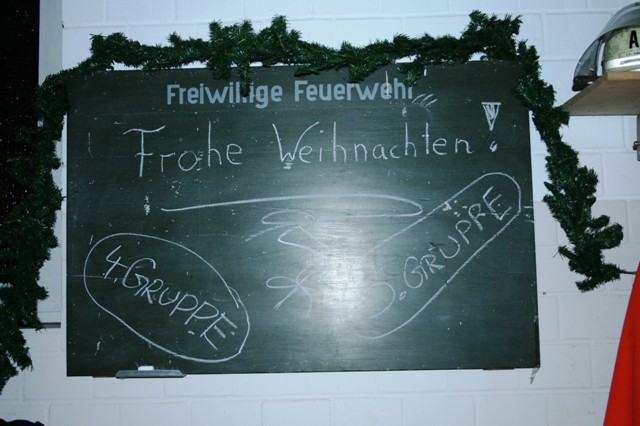 Freiwillige Feuerwehr
Frohe Weihnachten!
4. GRUPPE
GRUPPE
A